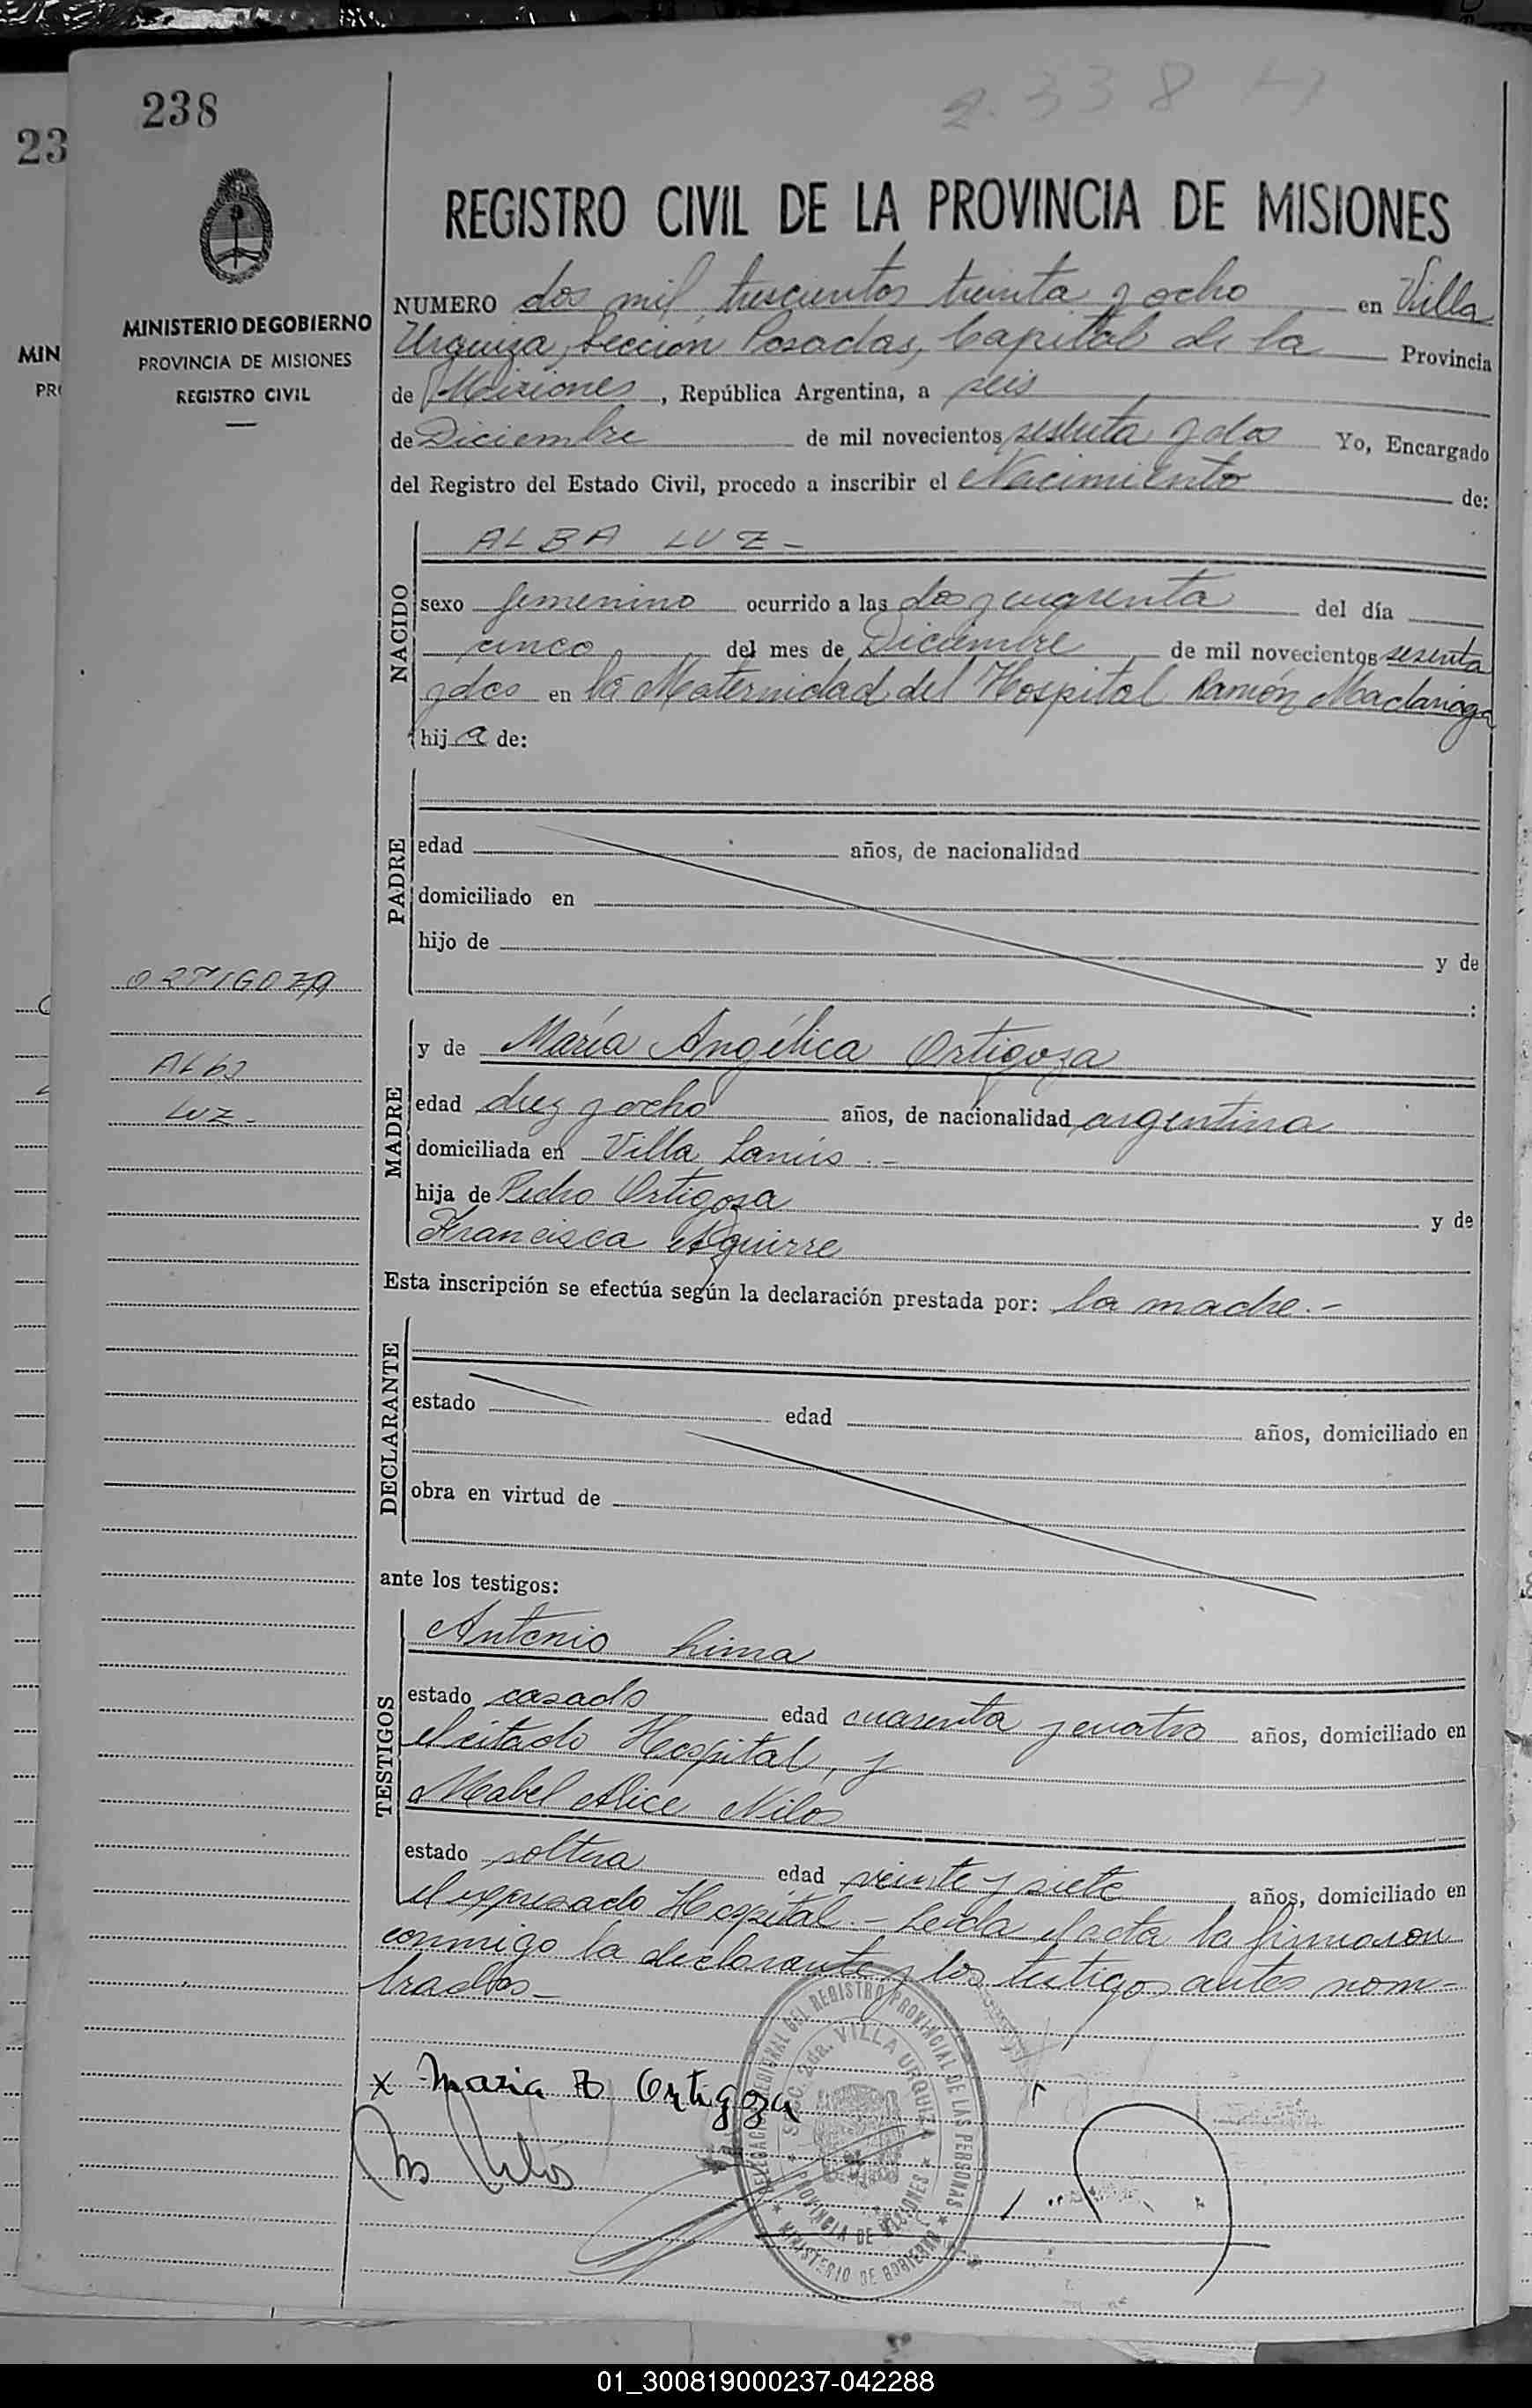 238
2.338
23
REGISTRO CIVIL DE LA PROVINCIA DE MISIONES
MINISTERIO DE GOBIERNO
PROVINCIA DE MISIONES
REGISTRO CIVIL
MIN
PR
NUMERO dos mil trescientos treinta y ocho en Villa
Urquiza, Sección Posadas, Capital de la Provincia
de Misiones, República Argentina, a seis
de Diciembre de mil novecientos sesenta y dos Yo, Encargado
del Registro del Estado Civil, procedo a inscribir el Nacimiento de:
NACIDO
ALBA LUZ -
sexo femenino ocurrido a las dos y cuarenta del día
cinco del mes de Diciembre de mil novecientos sesenta
y dos en la Maternidad del Hospital Ramón Madariaga
hija de:
PADRE
edad años, de nacionalidad
domiciliado en
hijo de y de
:
ORTIGOZA
ALBA
LUZ -
MADRE
y de María Angélica Ortigoza
edad diez y ocho años, de nacionalidad argentina
domiciliada en Villa Lanús . -
hija de Pedro Ortigoza y de
Francisca Aguirre
Esta inscripción se efectúa según la declaración prestada por: la madre. -
DECLARANTE
estado edad años, domiciliado en
obra en virtud de
ante los testigos:
TESTIGOS
Antonio Lima
estado casado edad cuarenta y cuatro años, domiciliado en
el citado Hospital, y
Mabel Alice Nilos
estado soltera edad veinte y siete años, domiciliado en
el expresado Hospital. - Leída el acta la firmaron
conmigo la declarante y los testigos antes nom-
brados -
x Maria A Ortigoza
DELEGACION REGIONAL DEL REGISTRO PROVINCIAL DE LAS PERSONAS
SEC. 2da. VILLA URQUIZA
PROVINCIA DE MISIONES
MINISTERIO DE GOBIERNO
01_300819000237-042288